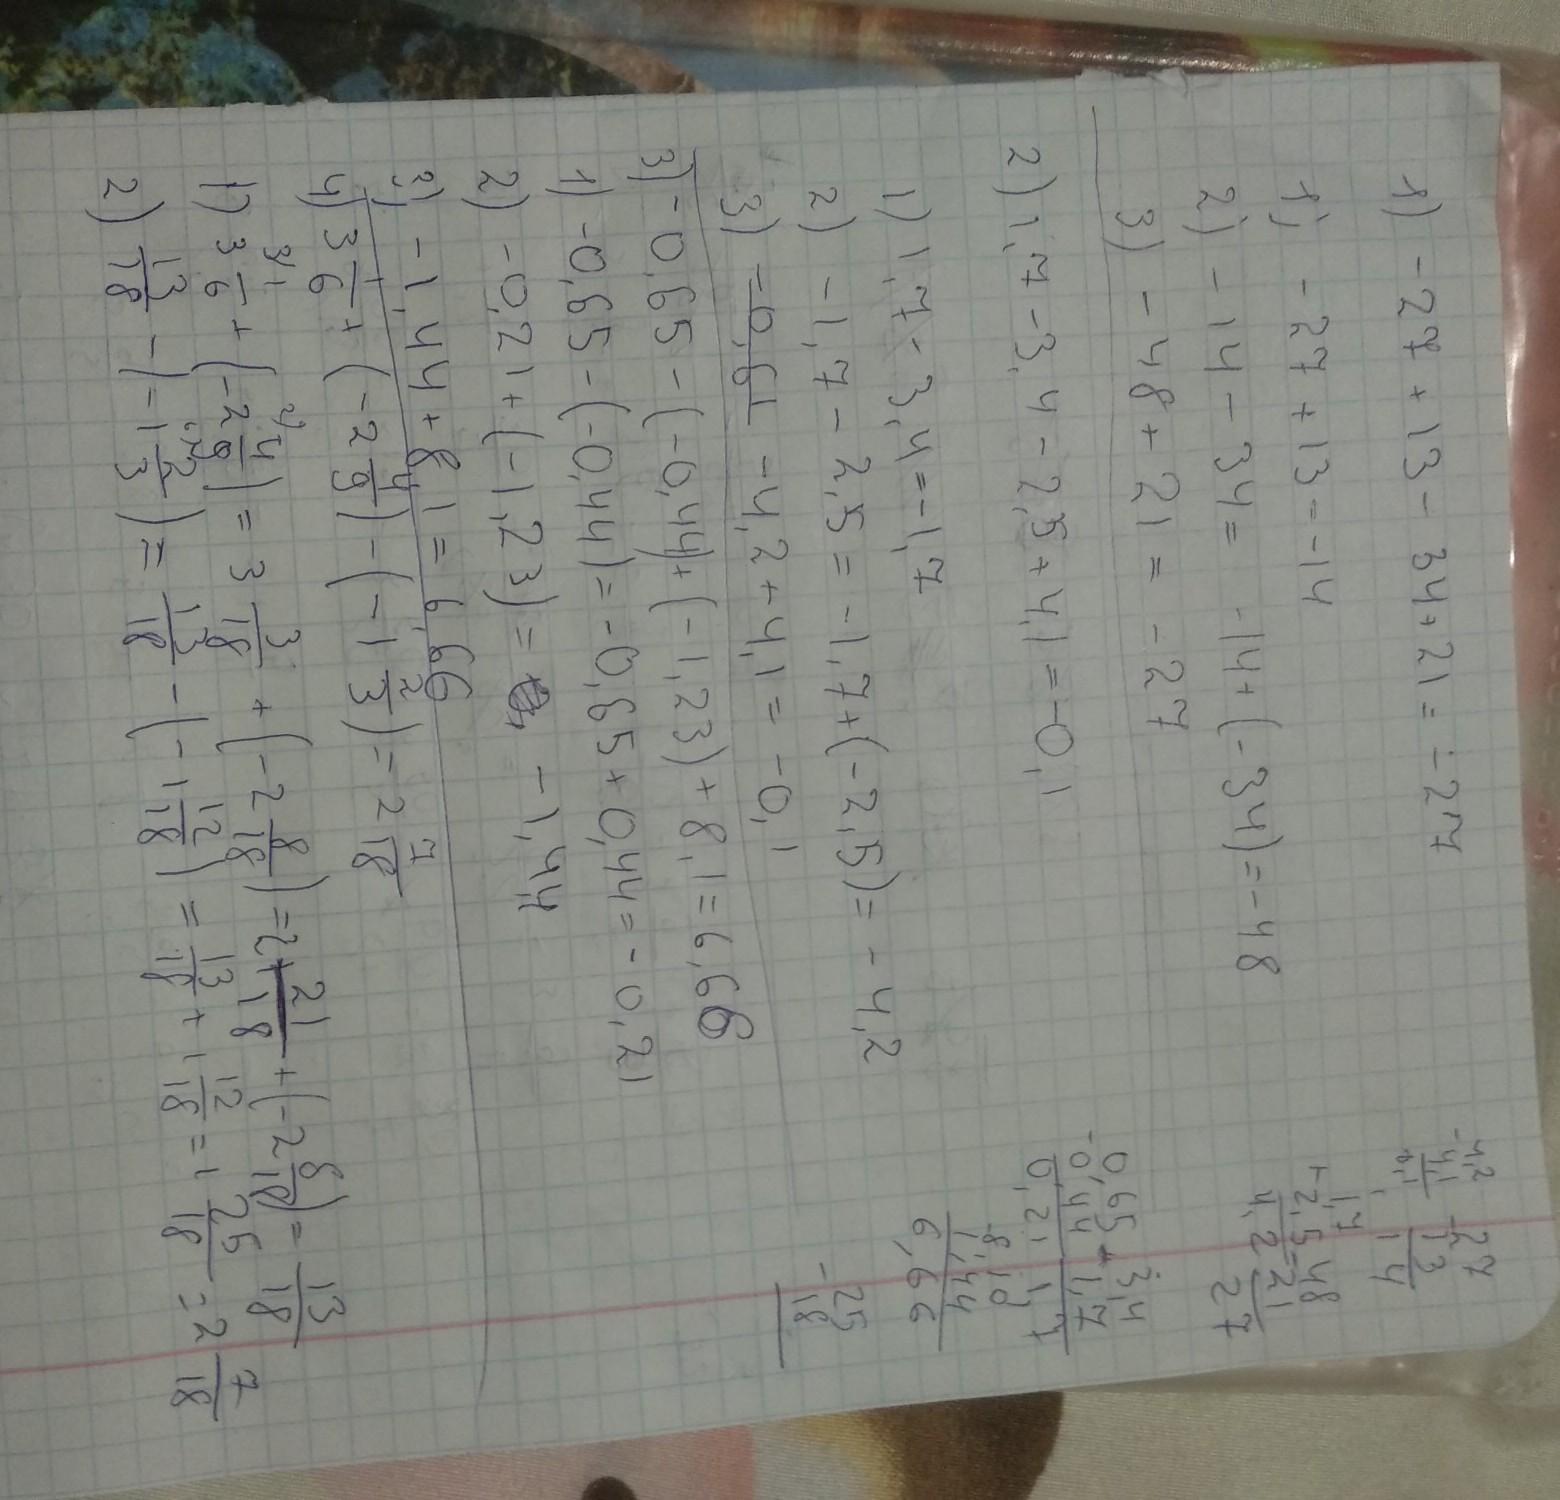 1) -27 + 13 - 34 + 21 = -27
1) -27 + 13 = -14
2) -14 - 34 = -14 + (-34) = -48
3) -48 + 21 = -27
2) 1,7 - 3,4 - 2,5 + 4,1 = -0,1
1) 1,7 - 3,4 = -1,7
2) -1,7 - 2,5 = -1,7 + (-2,5) = -4,2
3) -4,2 + 4,1 = -0,1
3) -0,65 - (-0,44) + (-1,23) + 8,1 = 6,66
1) -0,65 - (-0,44) = -0,65 + 0,44 = -0,21
2) -0,21 + (-1,23) = -1,44
3) -1,44 + 8,1 = 6,66
4) 3 1/6 + (-2 4/9) - (-1 2/3) = 2 7/18
1) 3 1/6 + (-2 4/9) = 3 3/18 + (-2 8/18) = 2 21/18 + (-2 8/18) = 13/18
2) 13/18 - (-1 2/3) = 13/18 - (-1 12/18) = 13/18 + 1 12/18 = 1 25/18 = 2 7/18
-4,2
4,1
-27
13
14
+1,7
2,5
4,2
-48
21
27
-0,65
0,44
0,21
-3,4
1,7
1,7
-8,10
1,44
6,66
-25
18